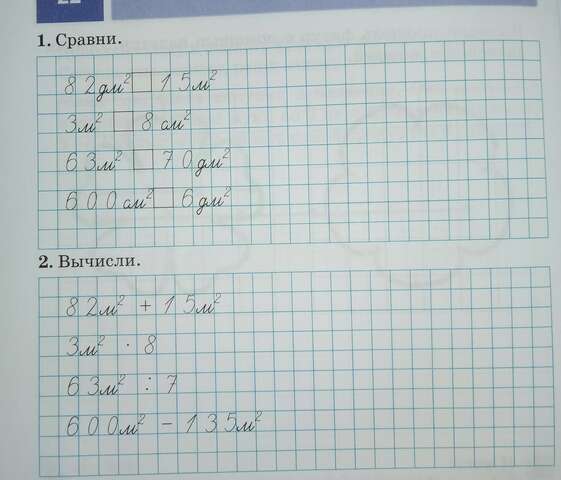 1. Сравни.
82дм² □ 15м²
3м² □ 8см²
63м² □ 70дм²
600см² □ 6дм²
2. Вычисли.
82м² + 15м²
3м² · 8
63м² : 7
600м² − 135м²